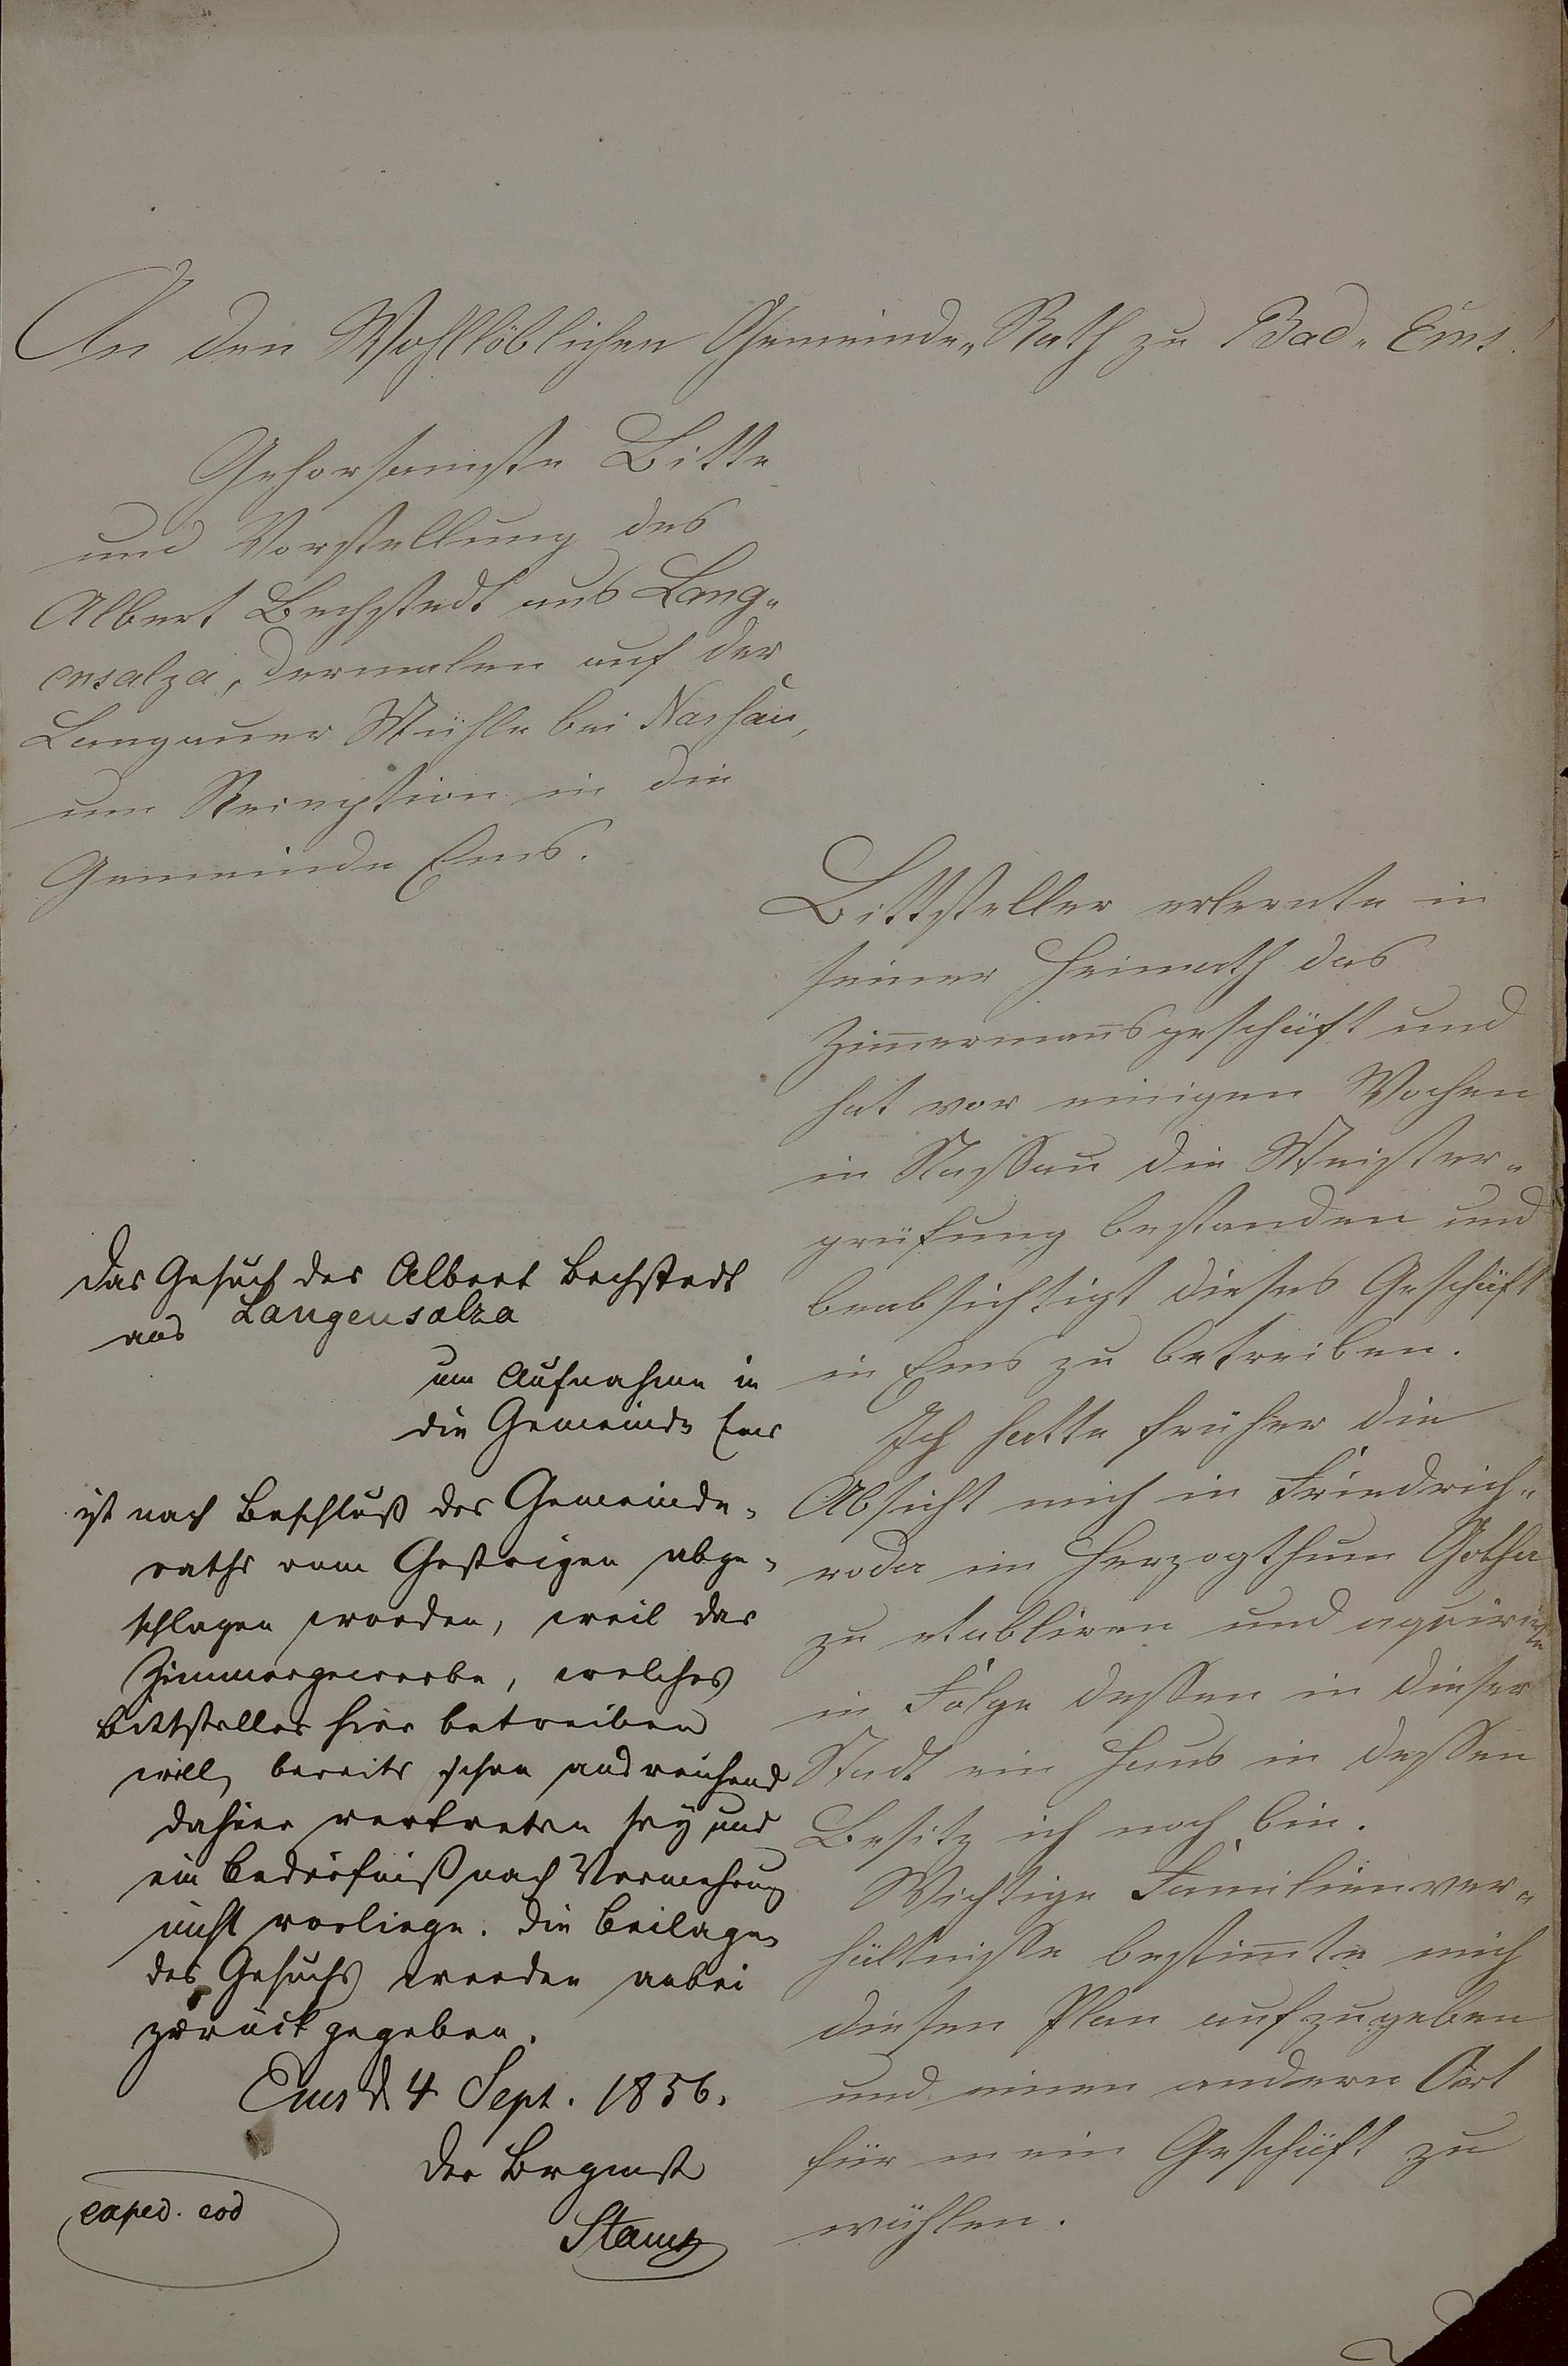 An den Wohllöblichen Gemeinde-Rath zu Bad-Ems!
Gehorsamste Bitte
und Vorstellung des
Albert Bechstedt aus Lang-
ensalza, dermalen auf der
Langauer Mühle bei Nassau,
um Reception in die
Gemeinde Ems.
Bittsteller erlernte in
seiner Heimath das
Zim̅erman̅sgeschäft und
hat vor einigen Wochen
in Nassau die Meister-
prüfung bestanden und
beabsichtigt dieses Geschäft
in Ems zu betreiben.
Ich hatte früher die
Absicht mich in Friedrich-
roda im Herzogthum Gotha
zu etabliren und aquirirte
in Folge dessen in dieser
Stadt ein Haus in dessen
Besitz ich noch bin.
Wichtige Familienver-
hältnisse bestim̅te mich
diesen Plan aufzugeben
und einen andern Ort
für mein Geschäft zu
wählen.
Das Gesuch des Albert Bechstedt
aus Langensalza
um Aufnahme in
die Gemeinde Ems
ist nach Beschluß des Gemeinde-
raths vom Gestrigen abge-
schlagen worden, weil das
Zimmergewerbe, welches
Bittsteller hier betreiben
will, bereits schon ausreichend
dahier vertreten sey und
ein Bedürfniß nach Vermehrung
nicht vorliege. Die Beilagen
des Gesuchs werden anbei
zurück gegeben.
Ems d 4 Sept. 1856.
Der Brgmst
exped. eod